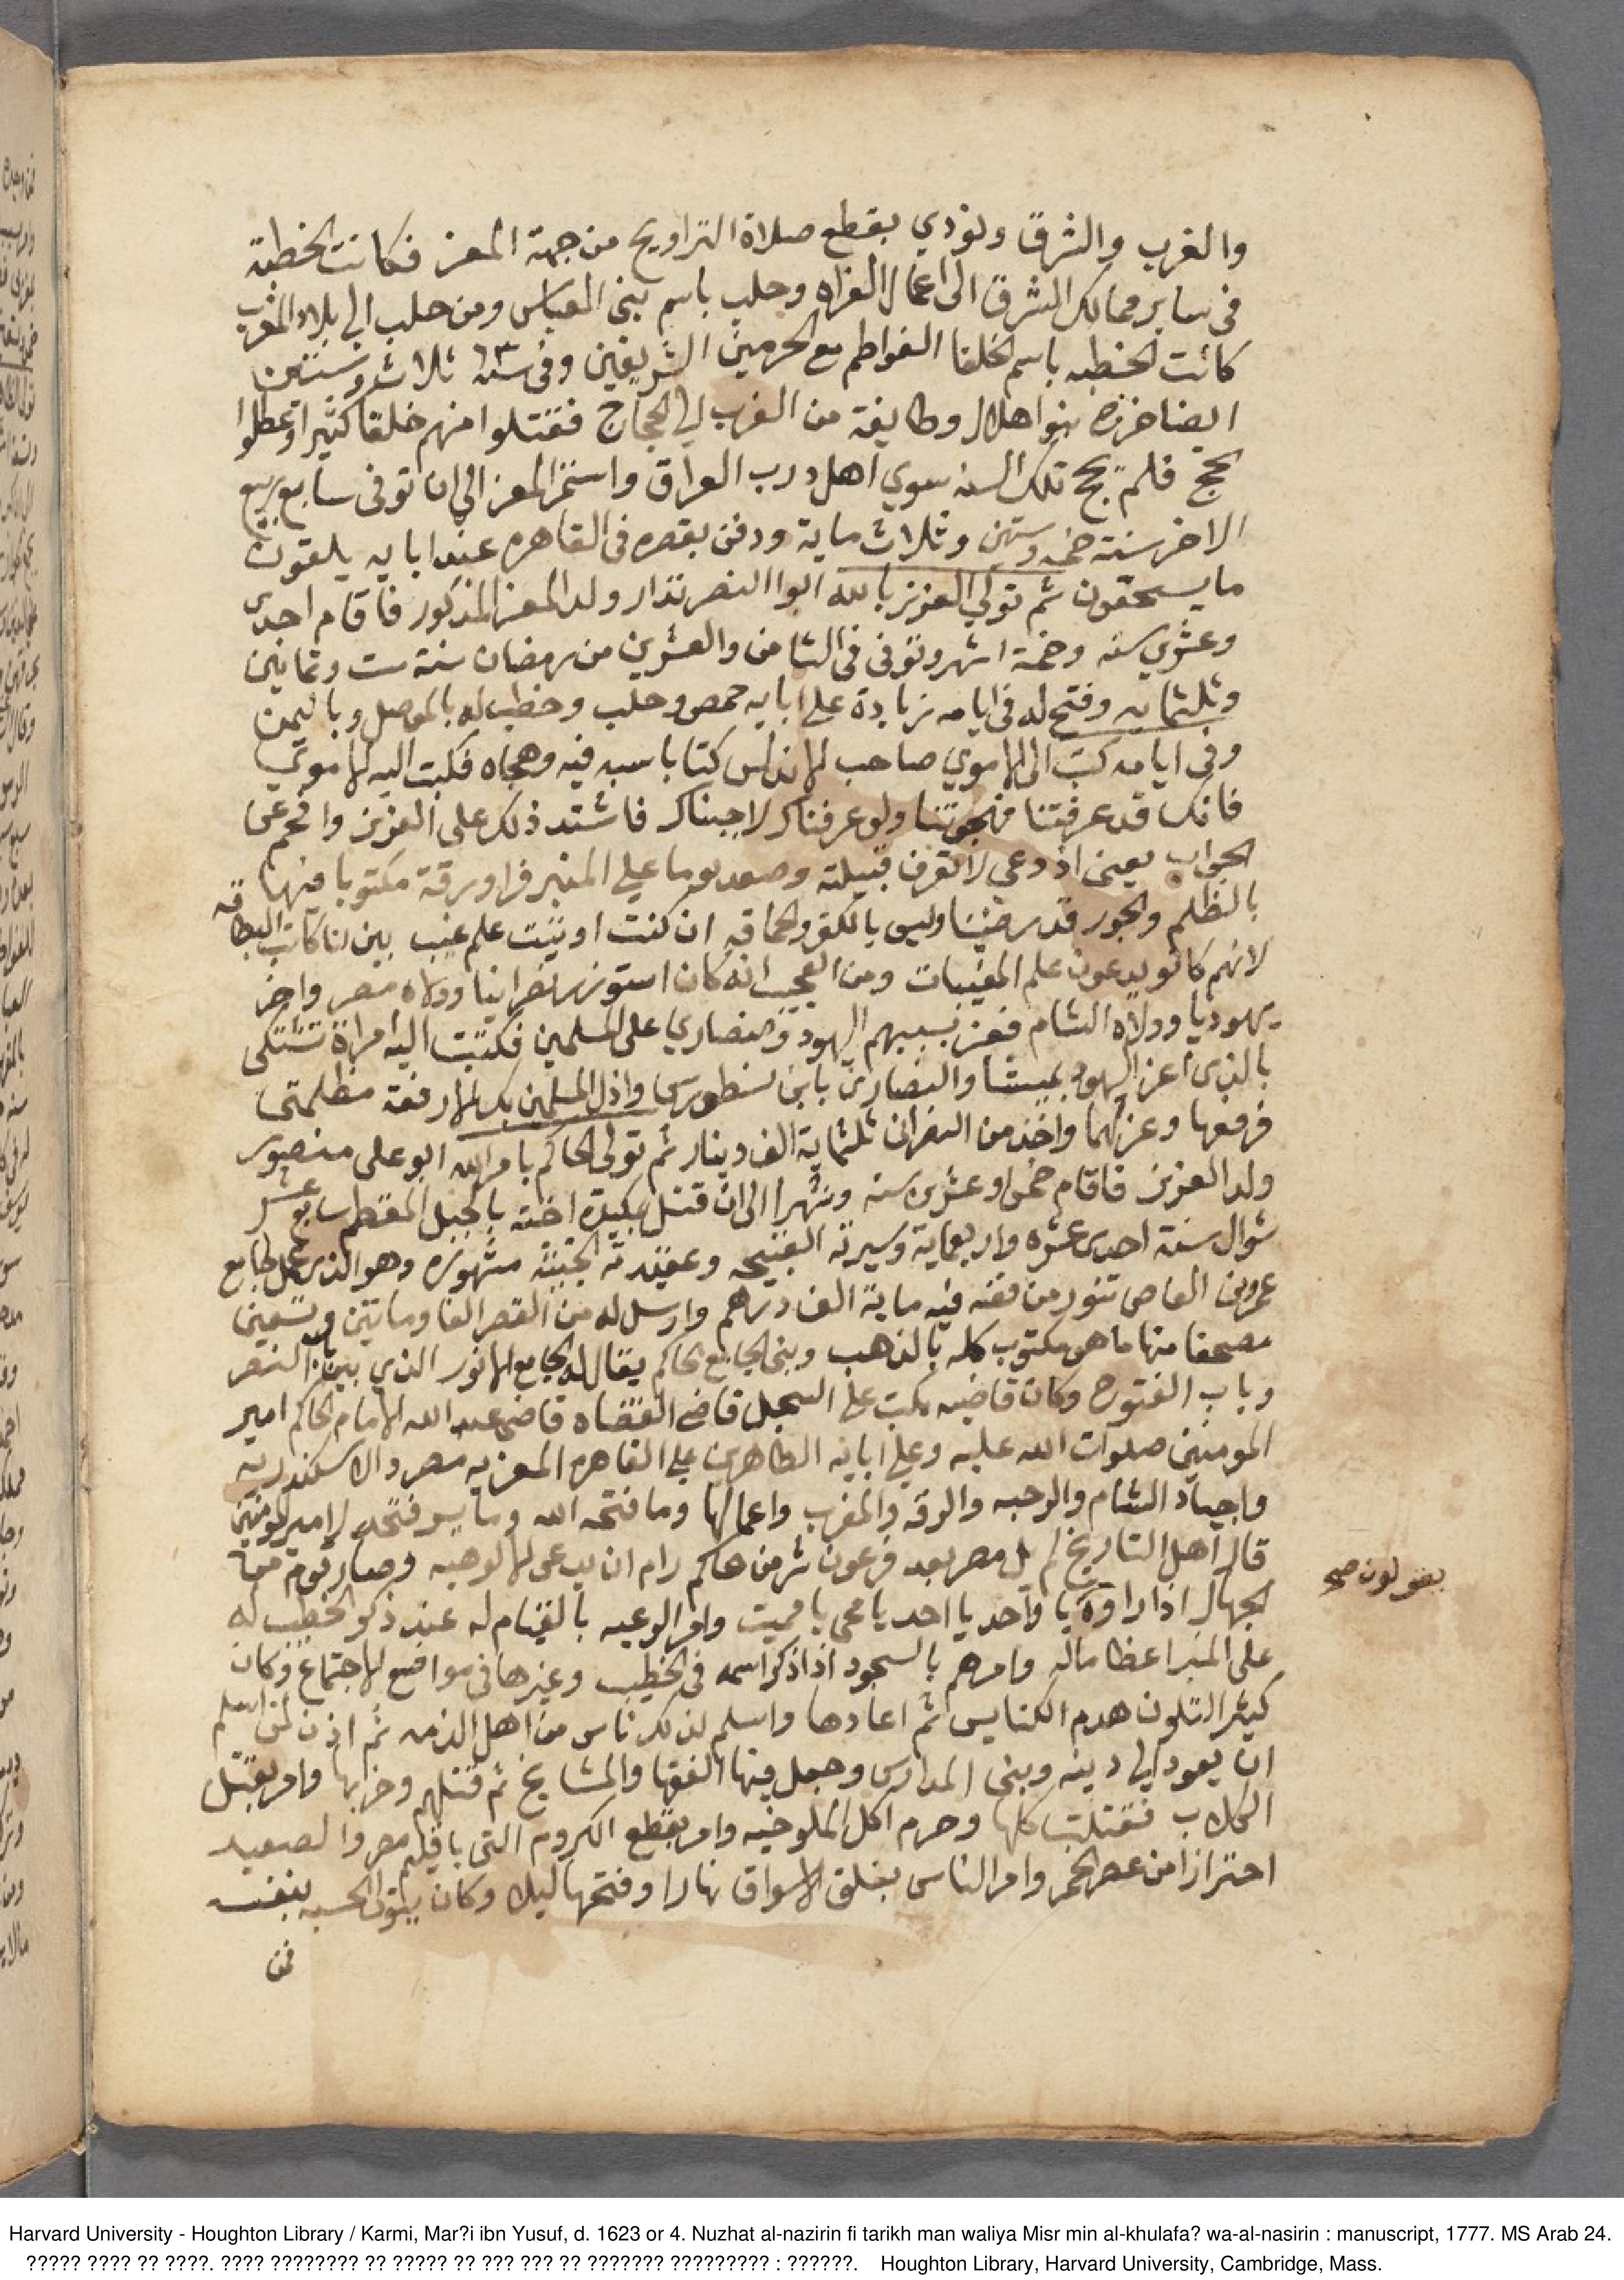 والغرب والشرق ونودي بقطع صلاة التراويح من جهة المعز فكانت الخطبة
في ساير ممالك الشرق الى اعمال الفراه وحلب باسم بني العباس ومن حلب الي بلاد المغرب
كانت الخطبه باسم الخلفا الفواطم مع الحرمين الشريفين وفي سنة ٦٣ ثلاث وستين
ايضا خرج بنوا هلال وطايفة من العرب الي الحجاج فقتلوا منهم خلقا كثيرا وعطلوا
الحج فلم يحج تلك السنه سوي اهل درب العراق واستمر المعز الي ان توفى سابع ربيع
الاخر سنة خمسه وستين وثلاث ماية ودفن بقصره في القاهره عند ابايه يلقون
ما يستحقون ثم تولي العزيز بالله ابوا النصر نزار ولد المعز المذكور فاقام احدى
وعشرين سنه وخمسة اشهر وتوفى في الثامن والعشرين من رمضان سنة ست وثمانين
وثلثمايه وفتح له في ايامه زيادة علي ابايه حمص وحلب وخطب له بالموصل وباليمن
وفي ايامه كتب الى الاموي صاحب الاندلس كتابا سبه فيه وهجاه فكتب اليه الاموي
فانك قد عرفتنا فهجوتنا ولو عرفناك لاجبناك فاشتد ذلك على العزيز وافحم عن
الجواب يعنى انه دعي لا تعرف قبيلته وصعد يوما علي المنبر فراى ورقة مكتوبا فيها
بالظلم والجور قد رضينا وليس بالكفر والحماقه ان كنت اوتيت علم غيب بين لنا كاتب البطاقه
لانهم كانو يدعون علم المغيبات ومن العجيب انه كان استوزر نصرانيا وولاه مصر واخر
يهوديا وولاه الشام فعز بسببهم اليهود والنصاري على المسلمين فكتبت اليه امراة تشتكى
بالذى اعز اليهود بميشا والنصارى بابن نسطورس واذل المسلمين بك الا رفعة مظلمتي
فرفعها وعزلهما واخذ من النصراني ثلثماية الف دينار ثم تولى الحاكم بامر الله ابو على منصور
ولد العزيز فاقام خمس وعشرين سنه وشهرا الى ان قتل بمكيدة اخته بالجبل المقطم سابع عشر
شوال سنة احدى عشره واربعماية وسيرته القبيحه وعقيدته الخبيثه مشهوره وهو الذى عمل لجامع
عمرو بن العاص تنور من فضه فيه ماية الف درهم وارسل له من القصر الفا وماتين وتسعين
مصحفا منها ما هو مكتوب كله بالذهب وبنى الجامع الحاكم يقال له الجامع الانور الذي بين باب النصر
وباب الفتوح وكان قاضيه يكتب على السجل قاضي القضاه قاضى عبد الله الامام الحاكم امير
المومنين صلوات الله عليه وعلي ابايه الطاهرين علي القاهره المعزيه مصر والاسكندريه
واجياد الشام والرحبه والرقه والمغرب واعمالها وما فتحه الله وما يسر فتحه لامير المومنين
قال اهل التاريخ لم يل مصر بعد فرعون شر من حاكم رام ان يدعى الالوهيه وصار قوم من
الجهال اذا راوه يا واحد يا احد يا محى يا مميت وامر الرعيه بالقيام له عند ذكر الخطيب له
على المنبر اعظاما له وامرهم بالسجود اذا ذكر اسمه في الخطب وغيرها في مواضع الاجتماع وكان
كثير التلون هدم الكنايس ثم اعادها واسلم لذلك ناس من اهل الذمه ثم اذن لمن اسلم
ان يعود الي دينه وبنى المدارس وجعل فيها الفقها والمشايخ ثم قتلهم وخربها وامر بقتل
الكلاب فقتلت كلها وحرم اكل الملوخيه وامر بقطع الكروم التى باقليم مصر والصعيد
احترازا من عصر الخمر وامر الناس بغلق الاسواق نهارا وفتحها ليلا وكان يتولى الحسبه بنفسه
فمن
يقولون صح
Harvard University - Houghton Library / Karmi, Mar?i ibn Yusuf, d. 1623 or 4. Nuzhat al-nazirin fi tarikh man waliya Misr min al-khulafa? wa-al-nasirin : manuscript, 1777. MS Arab 24.
????? ???? ?? ????. ???? ???????? ?? ????? ?? ??? ??? ?? ??????? ????????? : ??????. Houghton Library, Harvard University, Cambridge, Mass.